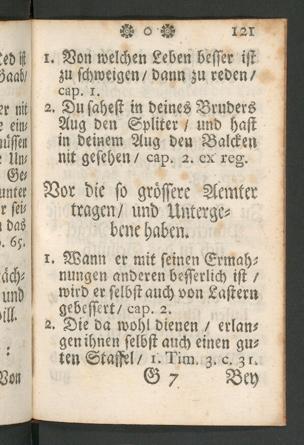 ❀ o ❀ 121
1. Von welchen Leben besser ist
zu schweigen / dann zu reden /
cap. 1.
2. Du sahest in deines Bruders
Aug den Spliter / und hast
in deinem Aug den Balcken
nit gesehen / cap. 2. ex reg.
Vor die so grössere Aemter
tragen / und Unterge-
bene haben.
1. Wann er mit seinen Ermah-
nungen anderen besserlich ist /
wird er selbst auch von Lastern
gebessert / cap. 2.
2. Die da wohl dienen / erlan-
gen ihnen selbst auch einen gu-
ten Staffel / 1. Tim. 3. c. 31.
G 7 Bey